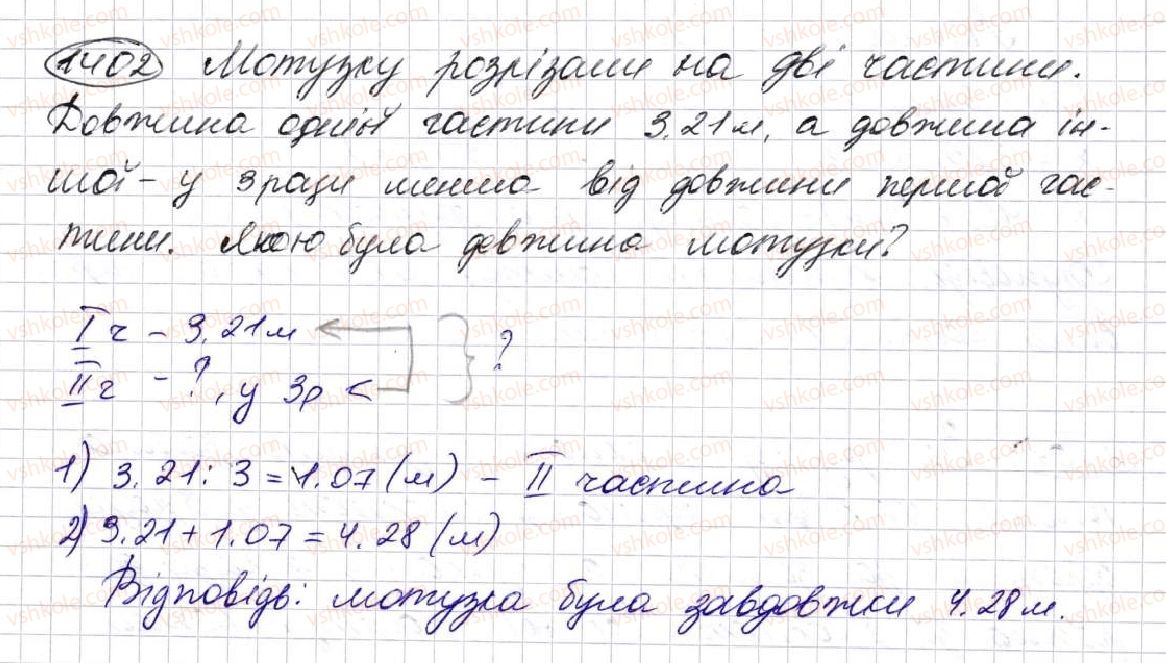 1402 Мотузку розрізали на дві частини.
Довжина однієї частини 3.21м, а довжина ін-
шої - у 3 рази менша від довжини першої час-
тини. Якою була довжина мотузки?
I ч - 3.21м ?
II ч - ?, у 3р <
1) 3.21 : 3 = 1.07 (м) - II частина
2) 3.21 + 1.07 = 4.28 (м)
Відповідь: мотузка була завдовжки 4.28м.